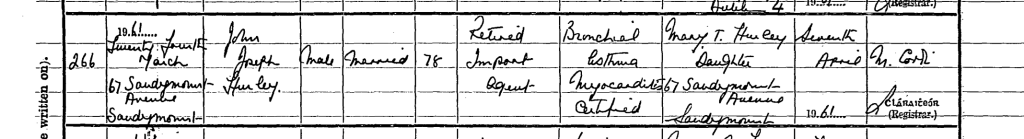 (Registrar.)
e written on).
266
19.61.....
Twenty Fourth
March
67 Sandymount
Avenue
Sandymount
John
Joseph
Hurley.
Male
Married
78
Retired
Import
Agent
Bronchial
Asthma
Myocarditis
Certified
Mary T. Hurley
Daughter
67 Sandymount
Avenue
Sandymount
Seventh
April
19.61.
Cláraitheóir
(Registrar.)